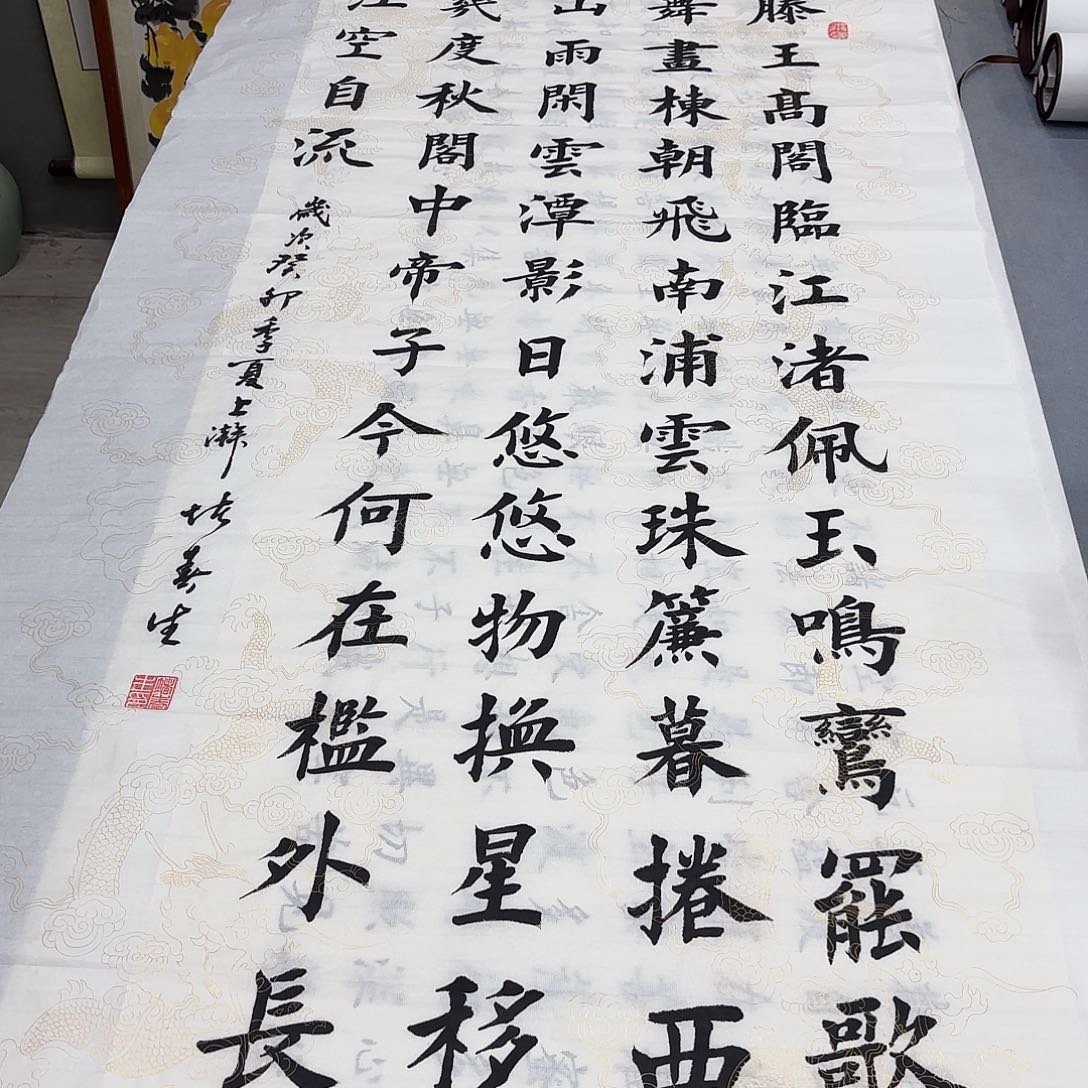 滕王髙閣臨江渚佩玉鳴鸞罷歌
舞畫棟朝飛南浦雲珠簾暮捲西
山雨閑雲潭影日悠悠物換星移
幾度秋閣中帝子今何在檻外長
江空自流
歲次癸卯季夏上澣 春生